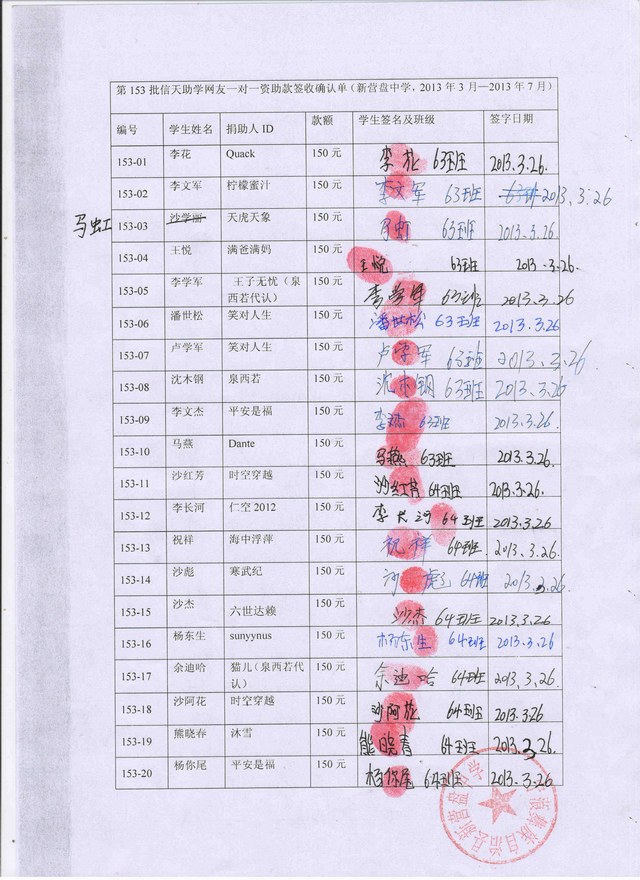 第 153 批信天助学网友一对一资助款签收确认单（新营盘中学，2013 年 3 月—2013 年 7 月）
编号 学生姓名 捐助人 ID 款额 学生签名及班级 签字日期
153-01 李花 Quack 150 元 李花 63班 2013.3.26.
153-02 李文军 柠檬蜜汁 150 元 李文军 63班 2013.3.26
马虹 153-03 沙学丽 天虎天象 150 元 马虹 63班 2013.3.26
153-04 王悦 满爸满妈 150 元 王悦 63班 2013.3.26.
153-05 李学军 王子无忧（泉西若代认） 150 元 李学军 63班 2013.3.26
153-06 潘世松 笑对人生 150 元 潘世松 63班 2013.3.26
153-07 卢学军 笑对人生 150 元 卢学军 63班 2013.3.26
153-08 沈木钢 泉西若 150 元 沈木钢 63班 2013.3.26
153-09 李文杰 平安是福 150 元 63班 2013.3.26.
153-10 马燕 Dante 150 元 马燕 63班 2013.3.26.
153-11 沙红芳 时空穿越 150 元 沙红芳 64班 2013.3.26.
153-12 李长河 仁空 2012 150 元 李长河 64班 2013.3.26
153-13 祝祥 海中浮萍 150 元 祝祥 64班 2013.3.26.
153-14 沙彪 寒武纪 150 元 沙彪 64班 2013.3.26
153-15 沙杰 六世达赖 150 元 沙杰 64班 2013.3.26
153-16 杨东生 sunyynus 150 元 杨东生 64班 2013.3.26
153-17 余迪哈 猫儿（泉西若代认） 150 元 余迪哈 64班 2013.3.26.
153-18 沙阿花 时空穿越 150 元 沙阿花 64班 2013.3.26
153-19 熊晓春 沐雪 150 元 熊晓春 64班 2013.3.26.
153-20 杨你尾 平安是福 150 元 杨你尾 64班 2013.3.26